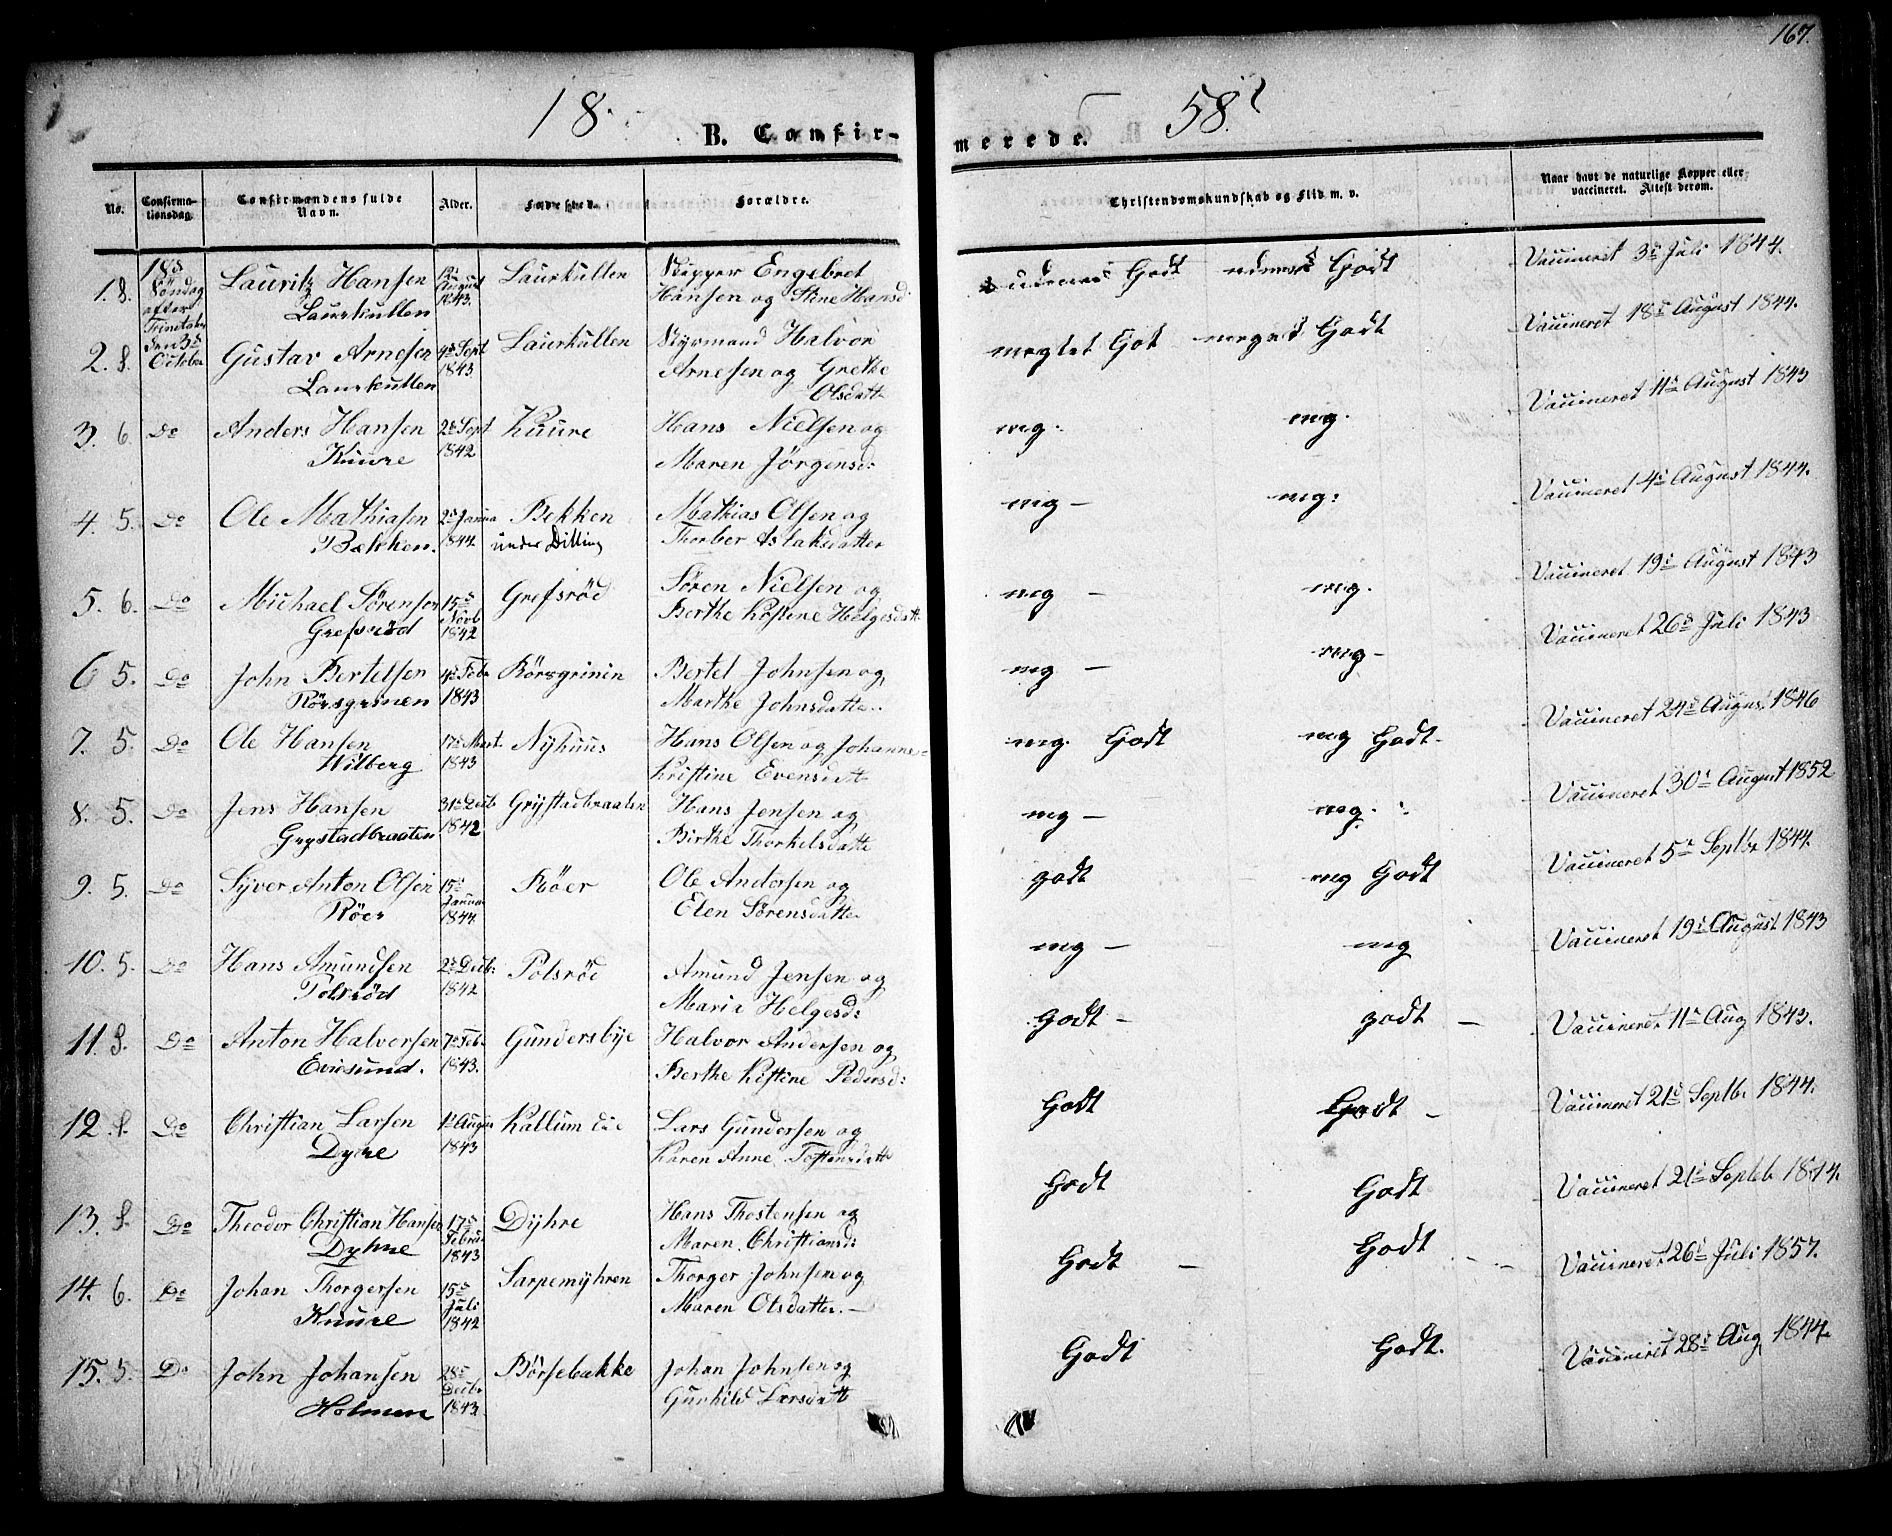 167.
18 58
B. Confirmerede.
No. Confirmationsdag. Confirmandens fulde Navn. Alder. Fødested. Forældre. Christendomskundskab og Flid m. v. Naar havt de naturlige Kopper eller vaccineret. Attest derom.
1. 8. 18de Søndag efter Trinitatis den 3de October Lauritz Hansen Laurkullen 12te August 1843. Laurkullen Skipper Engebret Hansen og Stine Hansd: Godt Godt Vaccineret 3d Juli 1844.
2. 8. Gustav Arnesen Laurkullen 4d Sept 1843 Laurkullen Styrmand Halvor Arnesen og Grethe Olsdatt meget Got meget Godt Vaccineret 18d August 1844.
3. 6. Do Anders Hansen Kuure 2d Sept 1842 Kuure Hans Nielsen og Maren Jörgensd: mg. mg. Vaccineret 11d August 1843
4. 5. Do Ole Mathiasen Bekken. 2d Janua 1844 Bekken under Dilling Mathias Olsen og Thorber Aslaksdatter mg — mg: Vaccineret 4d August 1844.
5. 6. Do Michael Sörensen Grefsröd 15d Novb 1842 Grefsröd Sören Nielsen og Berthe Kistine Helgesdatt mg — mg. Vaccineret 19d August 1843
6 5. Do John Bertelsen Rörsgrinen 4d Feb. 1843 Rörsgrinin Bertel Johnsen og Marthe Johnsdatte.. mg — mg — Vaccineret 26d Juli 1843
7. 5. Do Ole Hansen Wilberg 17d Mart. 1843 Nyhuus Hans Olsen og Johanne Kristine Evensdatt mg. Godt mg Godt. Vaccineret 24d August 1846
8. 5. Do Jens Hansen Grystadbraaten 31d Decb 1842 Grystadbraaten Hans Jensen og Birthe Thorkelsdatte mg — mg. Vaccineret 30d August 1852
9. 5. Do Syver Anton Olsen Röer 15d Janua 1844. Röer Ole Andersen og Elen Sörensdatte godt mg Godt Vaccineret 5d Septbr 1844.
10. 5. Do Hans Amundsen Tolsröd 2d Decb: 1842 Tolsröd Amund Jensen og Maria Helgesd: mg — mg Vaccineret 19d August 1843
11. 8. Do Anton Halvorsen 7d Feb. 1843. Gundersbye Halvor Andersen og Berthe Kistine Pedersd: godt — godt — Vaccineret 11d Aug 1843.
12. Do Christian Larsen Dyre 1d Augus 1843 Kallum Lars Gundersen og Karen Anne Tostensdatt Godt Godt — Vaccineret 21d Septbr 1844.
13. 8. Do Theodor Christian Hansen Dyhre 17d Febru 1843 Dyhre Hans Thostensen og Maren Christiansd: Godt Godt Vaccineret 21d Septbr 1844.
14. 6. Do Johan Thorgersen Kuure 15d Juli 1842 Sarpemyhren Thorger Johnsen og Maren Olsdatter. — Godt — Godt Vaccineret 26d Juli 1857.
15. 5. Do John Johansen Holmen 28d Decbr 1843. Börsebakke Johan Johnsen og Gunhild Larsdatt Godt Godt. Vaccineret 28d Aug 1844.